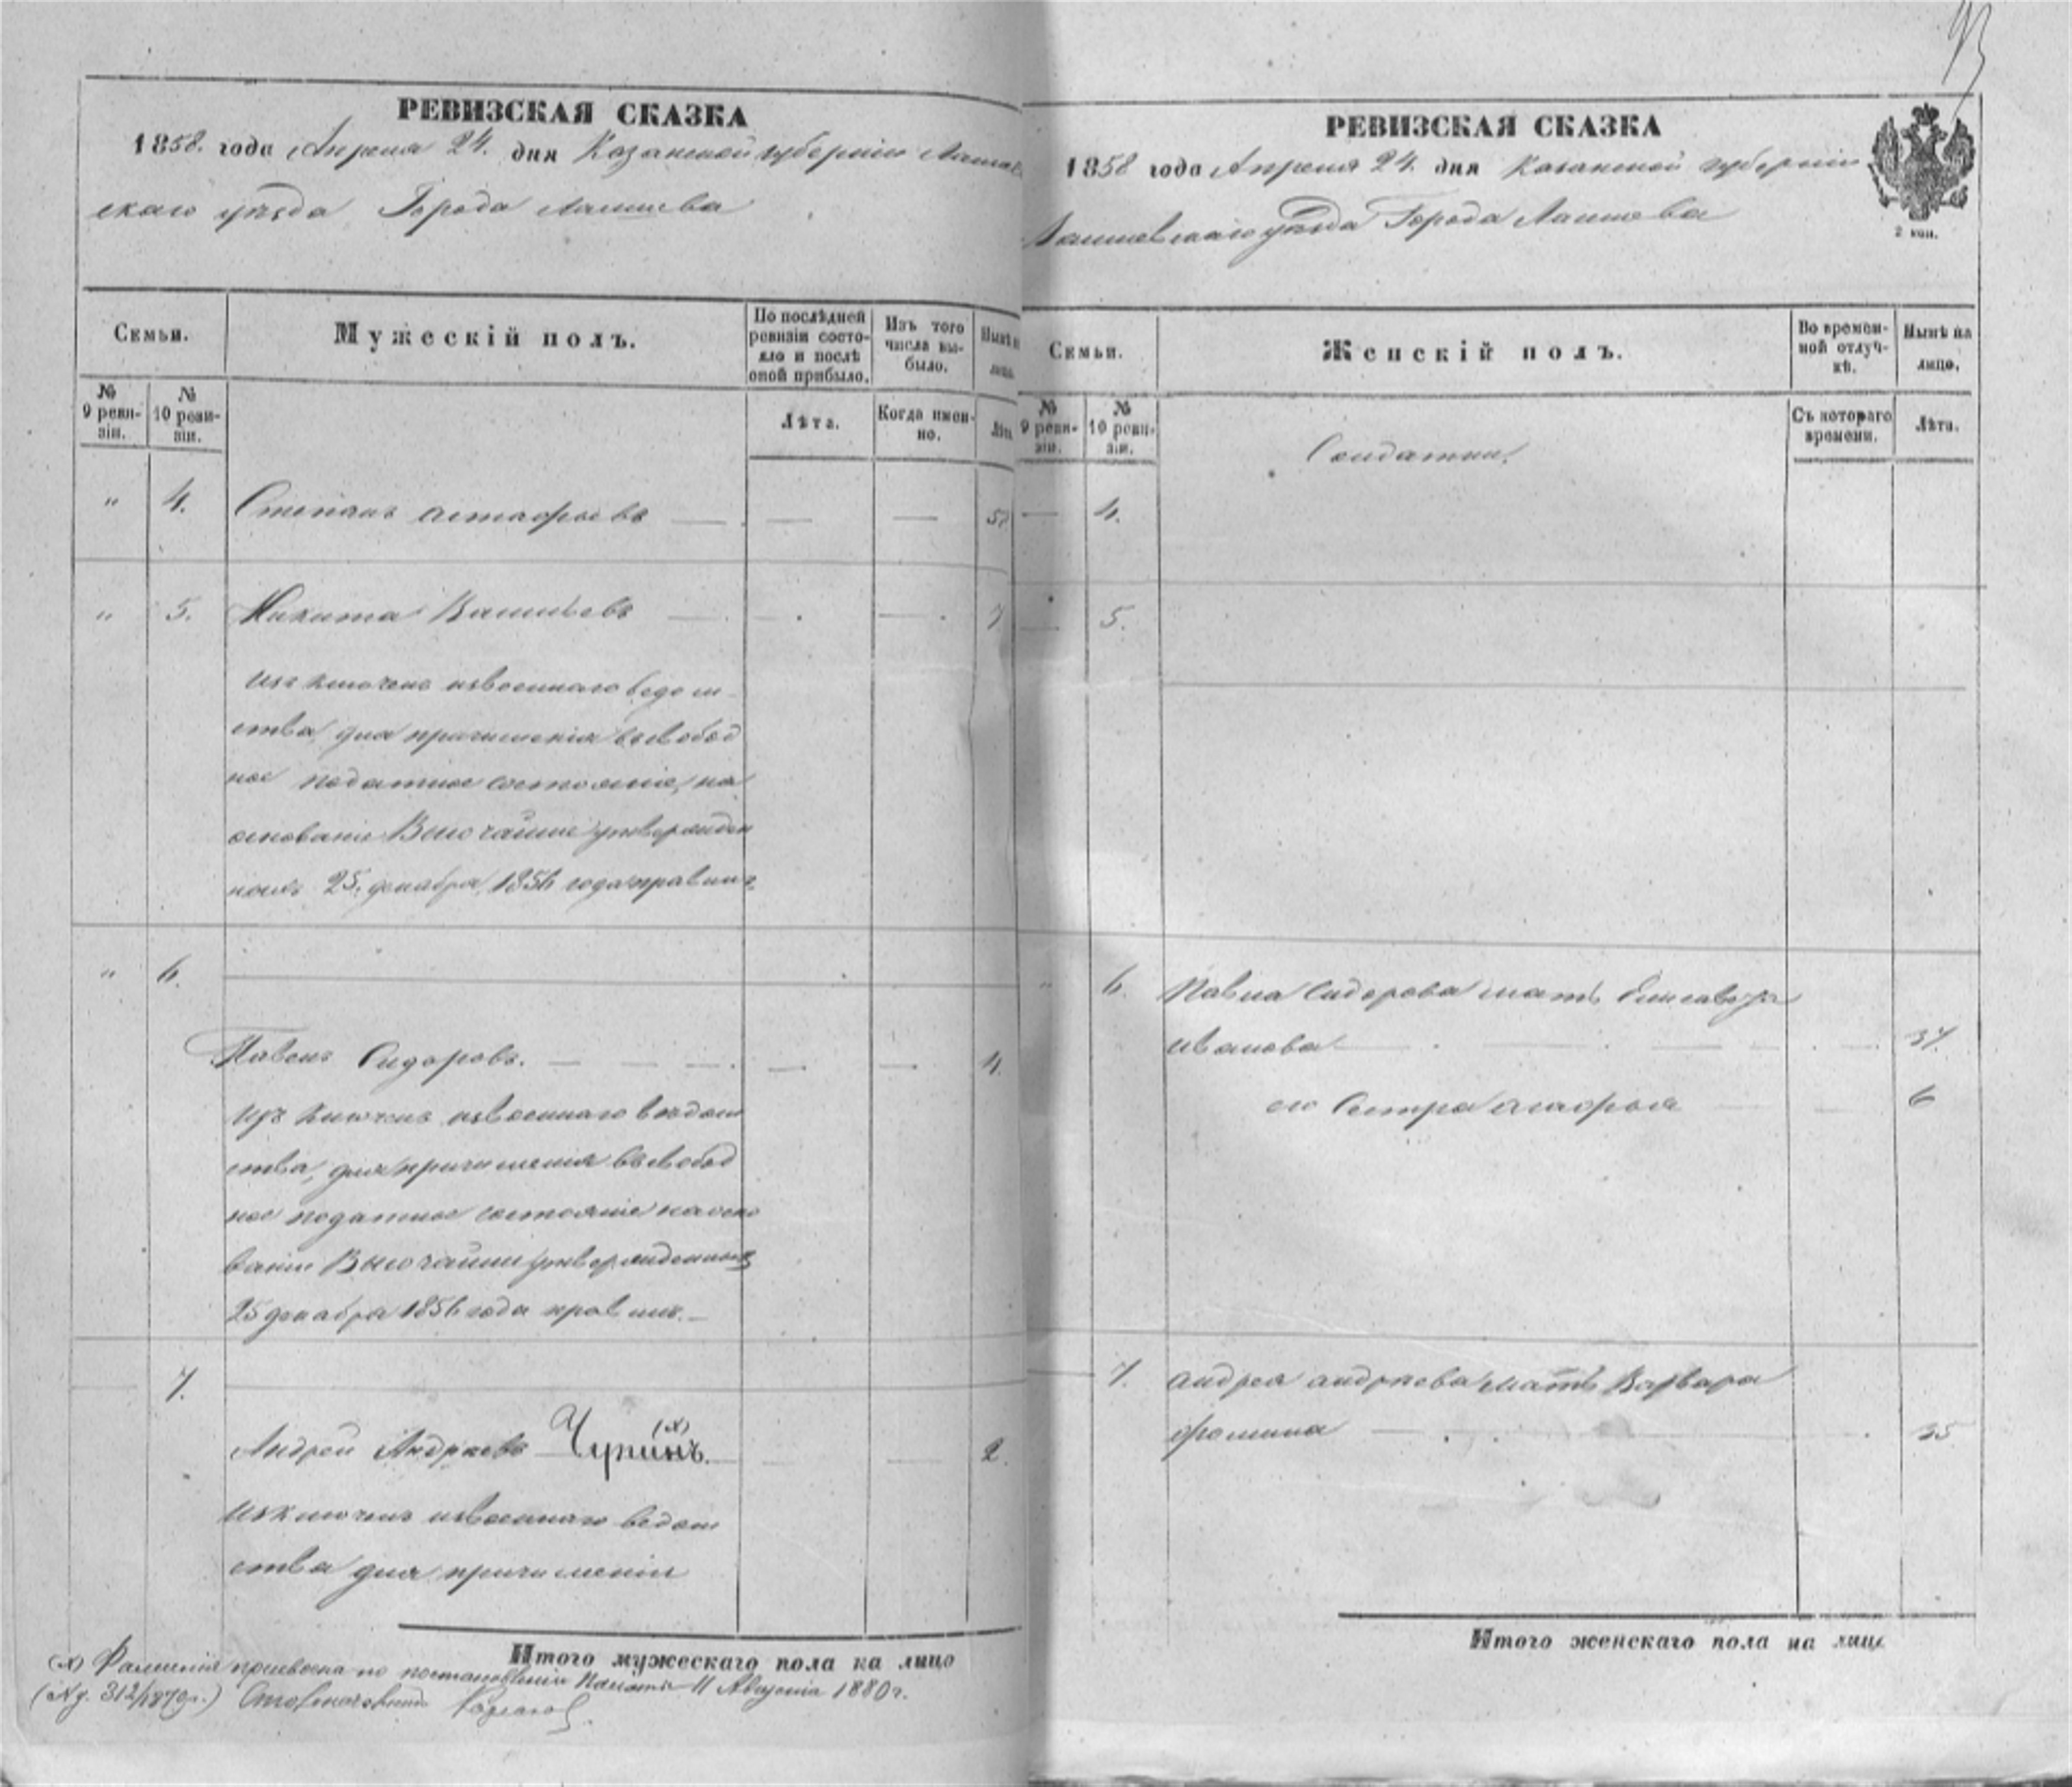 РЕВИЗСКАЯ СКАЗКА
1858. года Апреля 24. дня Казанской губерніи Лаишев
скаго уѣзда Города Лаишева
Семьи.
Мужескій полъ.
По послѣдней ревизіи состояло и послѣ оной прибыло.
Изъ того числа выбыло.
Нынѣ
№ 9 ревизіи.
№ 10 ревизіи.
Лѣта.
Когда именно.
Лѣта
" 4. Степанъ Астафьевъ
" 5. Никита Васильевъ 7
изключенъ извоеннаго ведом
ства, для причисленія всвобод
ное податное состояніе, на
основаніе Высочайше утвержден
ныхъ 25. декабря 1856 года правилъ
" 6.
Павелъ Сидоровъ. 4.
изключенъ извоеннаго вѣдом
ства, для причисленія всвобод
ное податное состояніе на осно
ваніи Высочайше утвержденныхъ
25 декабря 1856 года правилъ.
7.
Андрей Андреевъ Чупинъ. (х) 2.
изключенъ извоеннаго ведом
ства для причисленіи
Итого мужескаго пола на лицо
(х) Фамилія присвоена по постановленію Палаты 11 Августа 1880 г.
(№ д. 312/1879 г.) Столоначальникъ
РЕВИЗСКАЯ СКАЗКА
1858 года Апреля 24. дня Казанской губерніи
Лаишевскаго уѣзда Города Лаишева
2 коп.
Семьи.
Женскій полъ.
Во временной отлучкѣ.
Нынѣ на лицо.
№ 9 ревизіи.
№ 10 ревизіи.
Съ котораго времени.
Лѣта.
Солдатки.
4.
5.
" 6. Павла Сидорова мать Елисавета
Иванова 37.
его Сестра Агафья 6
7. Андрея Андреева мать Варвара
Фомина 35
Итого женскаго пола на лицо